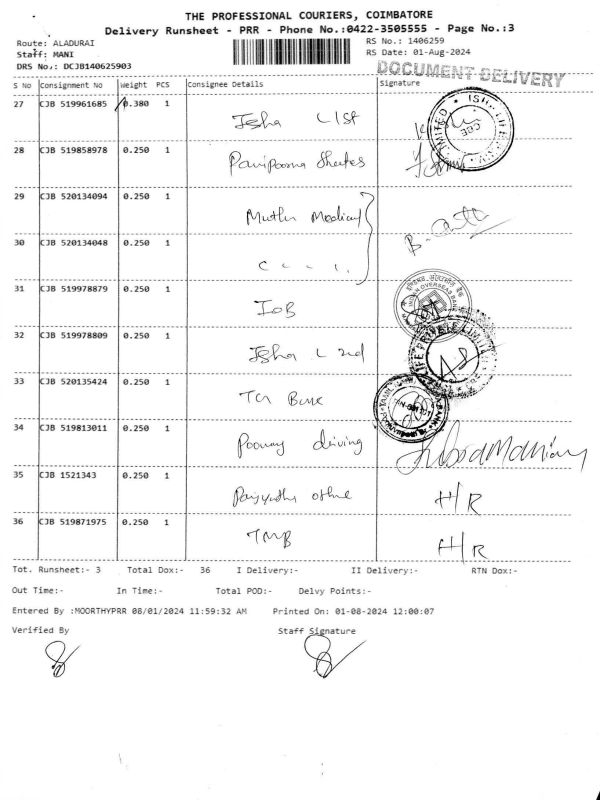 THE PROFESSIONAL COURIERS, COIMBATORE
Delivery Runsheet - PRR - Phone No.:0422-3505555 - Page No.:3
Route: ALADURAI
RS No.: 1406259
Staff: MANI
RS Date: 01-Aug-2024
DRS No.: DCJB140625903
DOCUMENT DELIVERY
S No Consignment No Weight PCS Consignee Details Signature
27 CJB 519961685 0.380 1 Isha
28 CJB 519858978 0.250 1
29 CJB 520134094 0.250 1 Muthu Medical
30 CJB 520134048 0.250 1
31 CJB 519978879 0.250 1 IOB
INDIAN OVERSEAS BANK
32 CJB 519978809 0.250 1 Isha L 2nd
LIFE PRIVATE LIMITED
33 CJB 520135424 0.250 1
34 CJB 519813011 0.250 1 driving
35 CJB 1521343 0.250 1 H/R
36 CJB 519871975 0.250 1 TMB H/R
Tot. Runsheet:- 3 Total Dox:- 36 I Delivery:- II Delivery:- RTN Dox:-
Out Time:- In Time:- Total POD:- Delvy Points:-
Entered By :MOORTHYPRR 08/01/2024 11:59:32 AM Printed On: 01-08-2024 12:00:07
Verified By Staff Signature